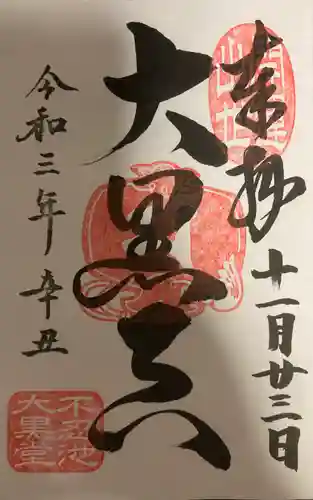 奉拝
十一月廿三日
大黒天
令和三年 辛丑
不忍池
大黒堂